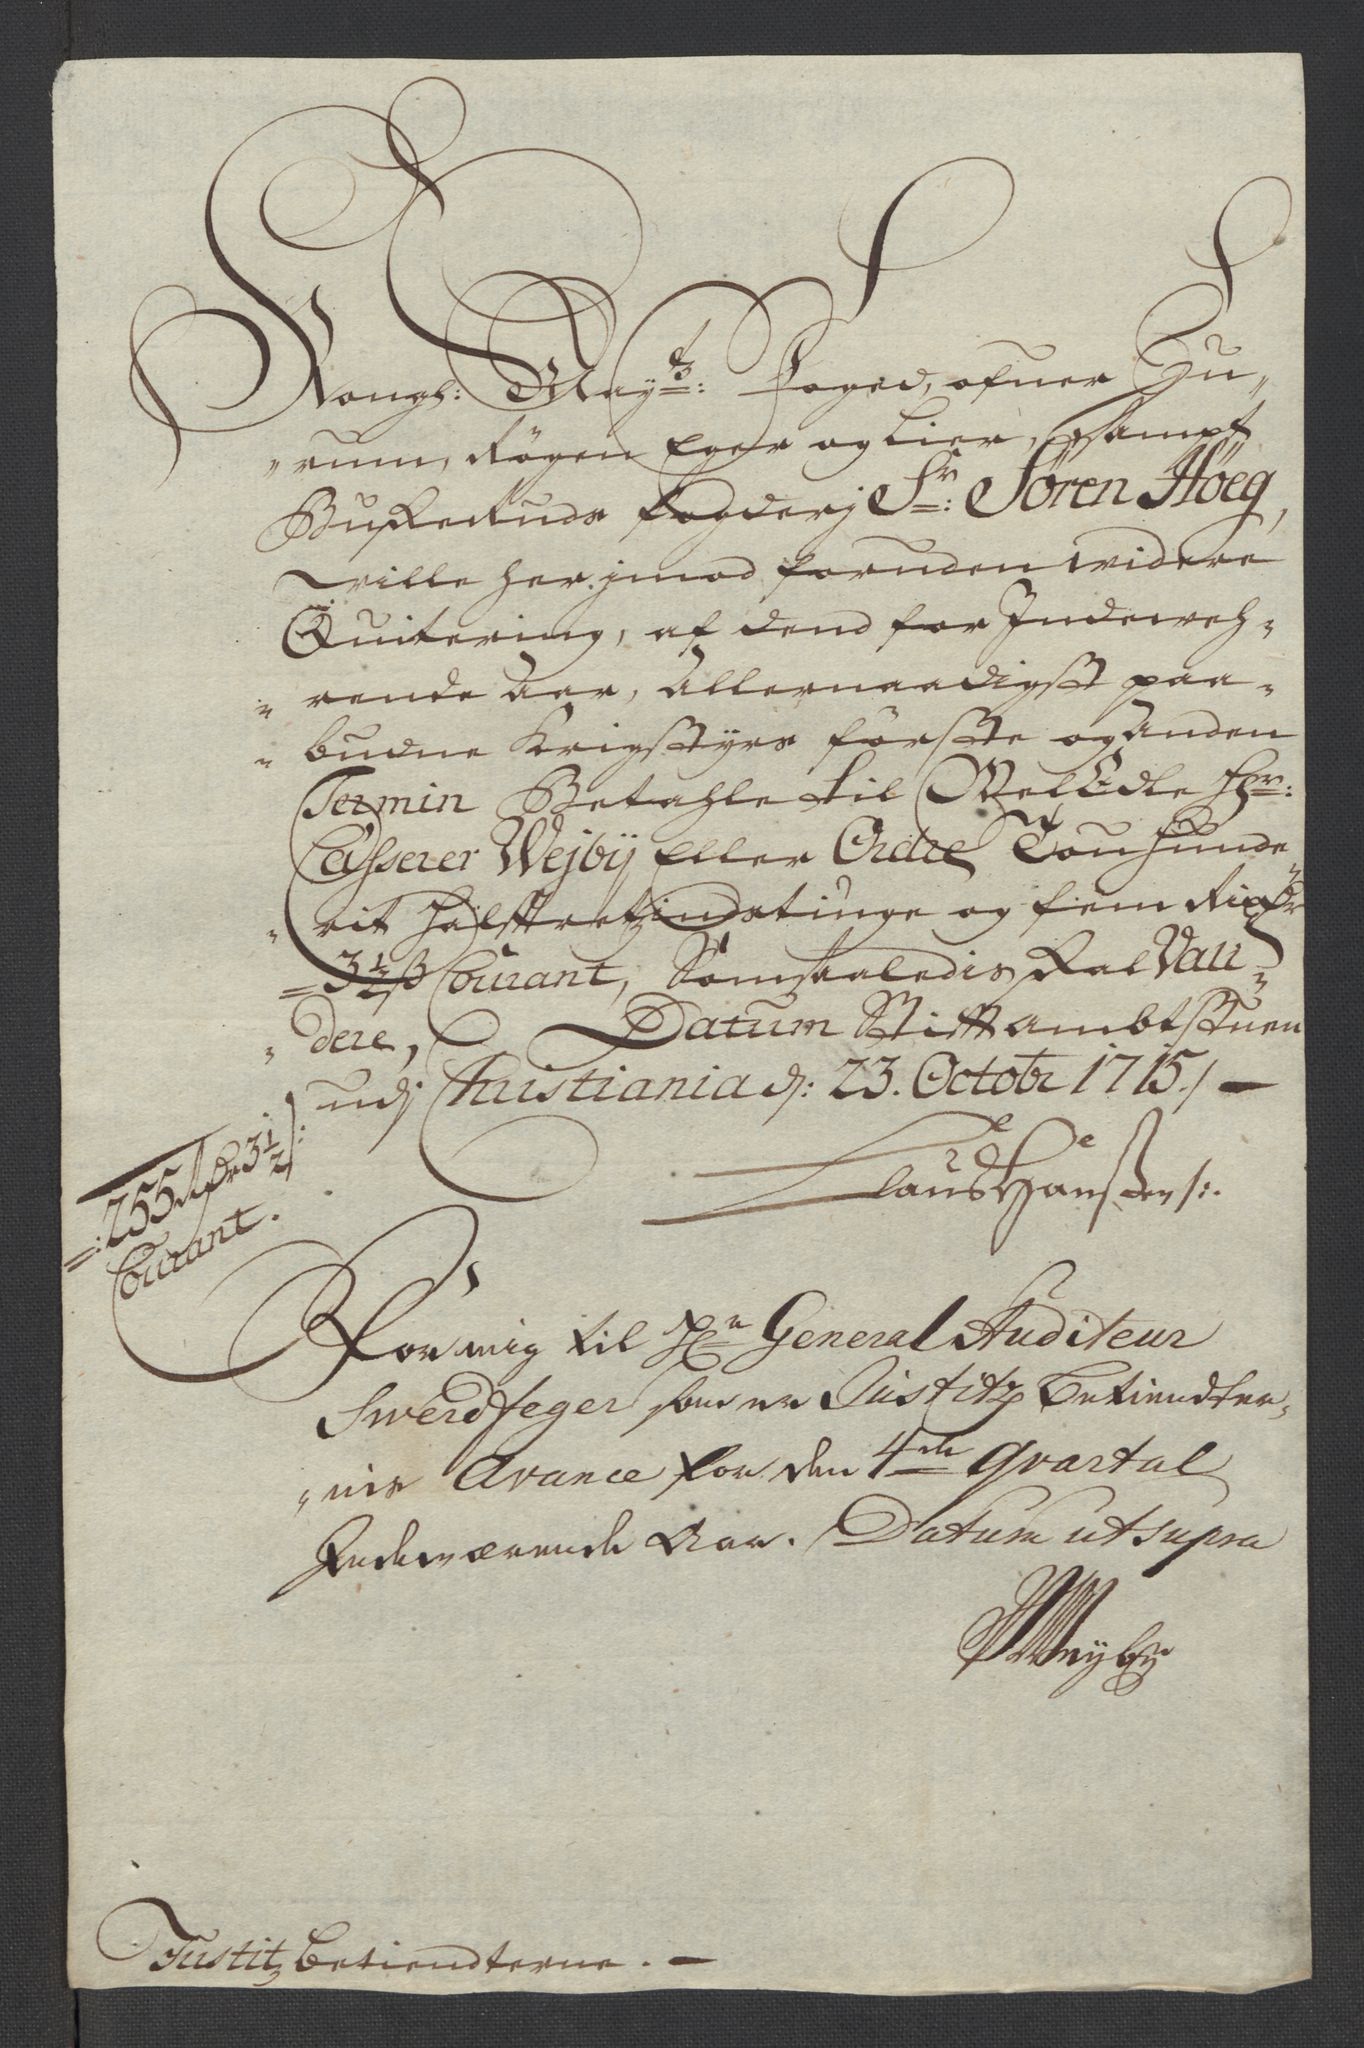 Kongl: May:ts: Foged, ofuer Hu„
„rum, Røgen Eger og Lier, sampt
Buskeruds fogderj Sr: Søren Høeg,
wille her jmod foruden widere
Quitering, af dend for Indeweh„
„rende Aar, Allernaadigst paa„
„budne Krigsstyrs førsste og Anden
Termin Betahle til WelEdle Hr:
Casserer Wejbÿ Eller Ordre Touhunde„
„rit Halftretzindstiuge og fiem Rixdr
=3½ β Courant, Somsaaledis skal Vali„
„dere, Datum Stiftambtstuen
udj Christiania d: 23. Octobr 1715./.
Claus Hanssen /:.
=: 255 Rdr 3½ β:
Courant.
For mig til Hr General Auditeur
Swerdfeger som er Justitz betiendter„
„nis Avance for den 4de Qvartal
Indeværende Aar. Datum ut supra
Weyby
Justitz betiendterne.